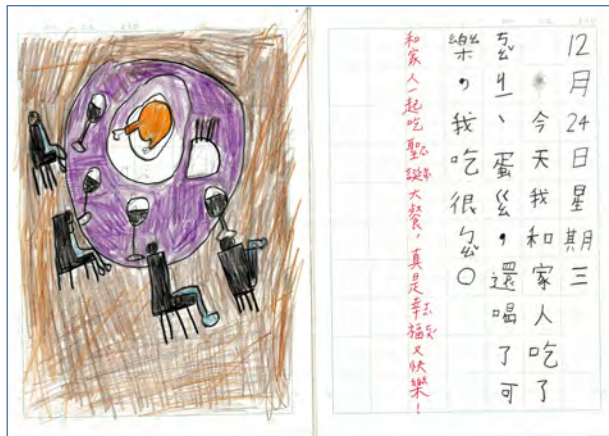 12月24日星期三
今天我和家人吃了
ㄎㄠㄐㄧ、蛋ㄍㄠ，還喝了可
樂，我吃很ㄅㄠ。
和家人一起吃聖誕大餐，真是幸福又快樂！